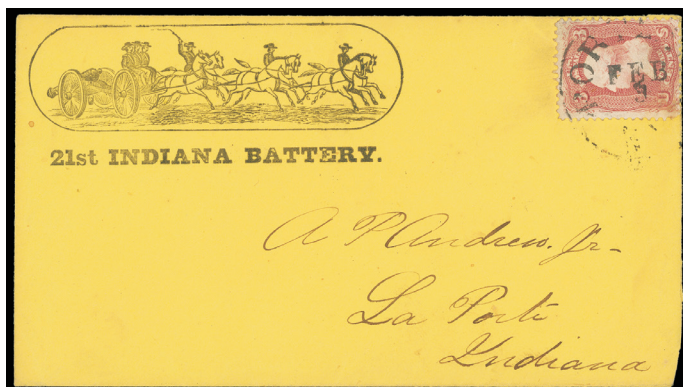 21st INDIANA BATTERY.
FEB
3
A P Andrew. Jr-
La Porte
Indiana